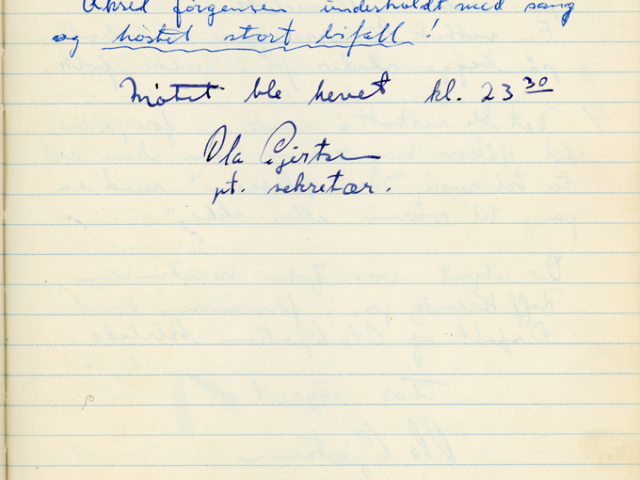 Jørgensen underholdt med sang
og høstet stort bifall !
Møtet ble hevet kl. 23 30
Ola Gjertsen
pt. sekretær.